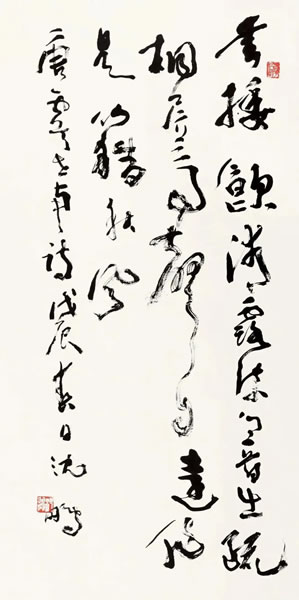 垂緌飲清露流響出疏
桐居高聲自遠非
是藉秋風
唐虞世南詩戊辰春日沈鵬